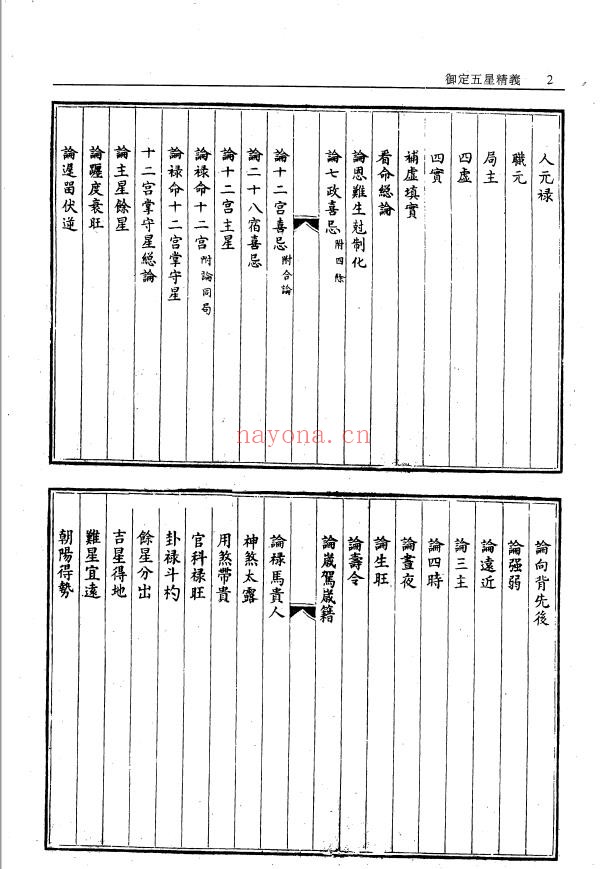 御定五星精義 2
人元禄
職元
局主
四虛
四實
補虛填實
看命總論
論恩難生尅制化
論七政喜忌附四餘
論十二宮喜忌附合論
論二十八宿喜忌
論十二宮主星
論祿命十二宮附論同局
論祿命十二宮掌守星
十二宮掌守星總論
論主星餘星
論躔度衰旺
論遲留伏逆
論向背先後
論强弱
論遠近
論三主
論四時
論晝夜
論生旺
論壽令
論歲駕歲籍
論祿馬貴人
神煞太露
用煞帶貴
官科祿旺
卦祿斗杓
餘星分出
吉星得地
難星宜遠
朝陽得勢
nayona.cn